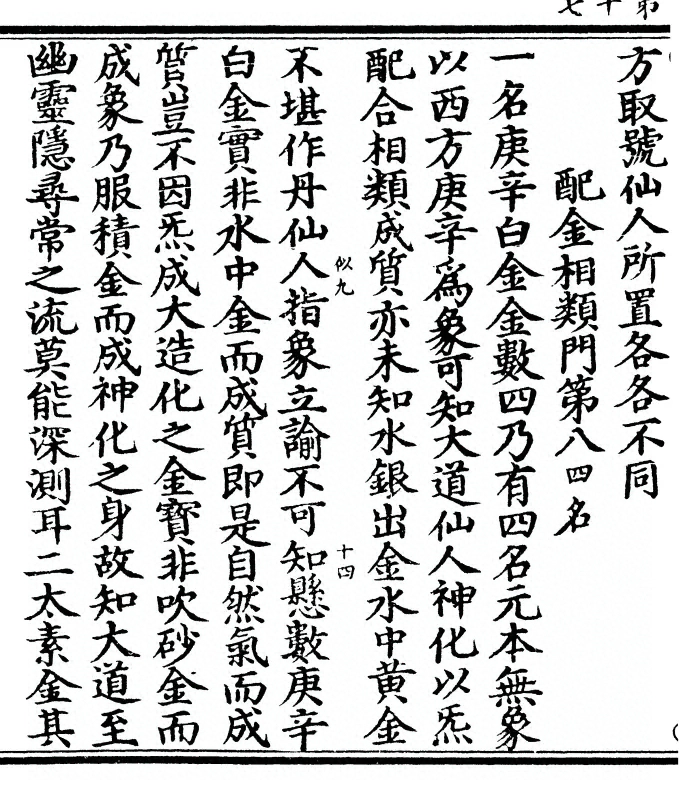 第十七
方取號仙人所置各各不同
配金相類門第八四名
一名庚辛白金金數四乃有四名元本無象
以西方庚辛為象可知大道仙人神化以炁
配合相類成質亦未知水銀出金水中黃金
似九
十四
不堪作丹仙人指象立諭不可知懸數庚辛
白金實非水中金而成質即是自然氣而成
質豈不因炁成大造化之金寶非吹砂金而
成象乃服積金而成神化之身故知大道至
幽靈隱尋常之流莫能深測耳二太素金其